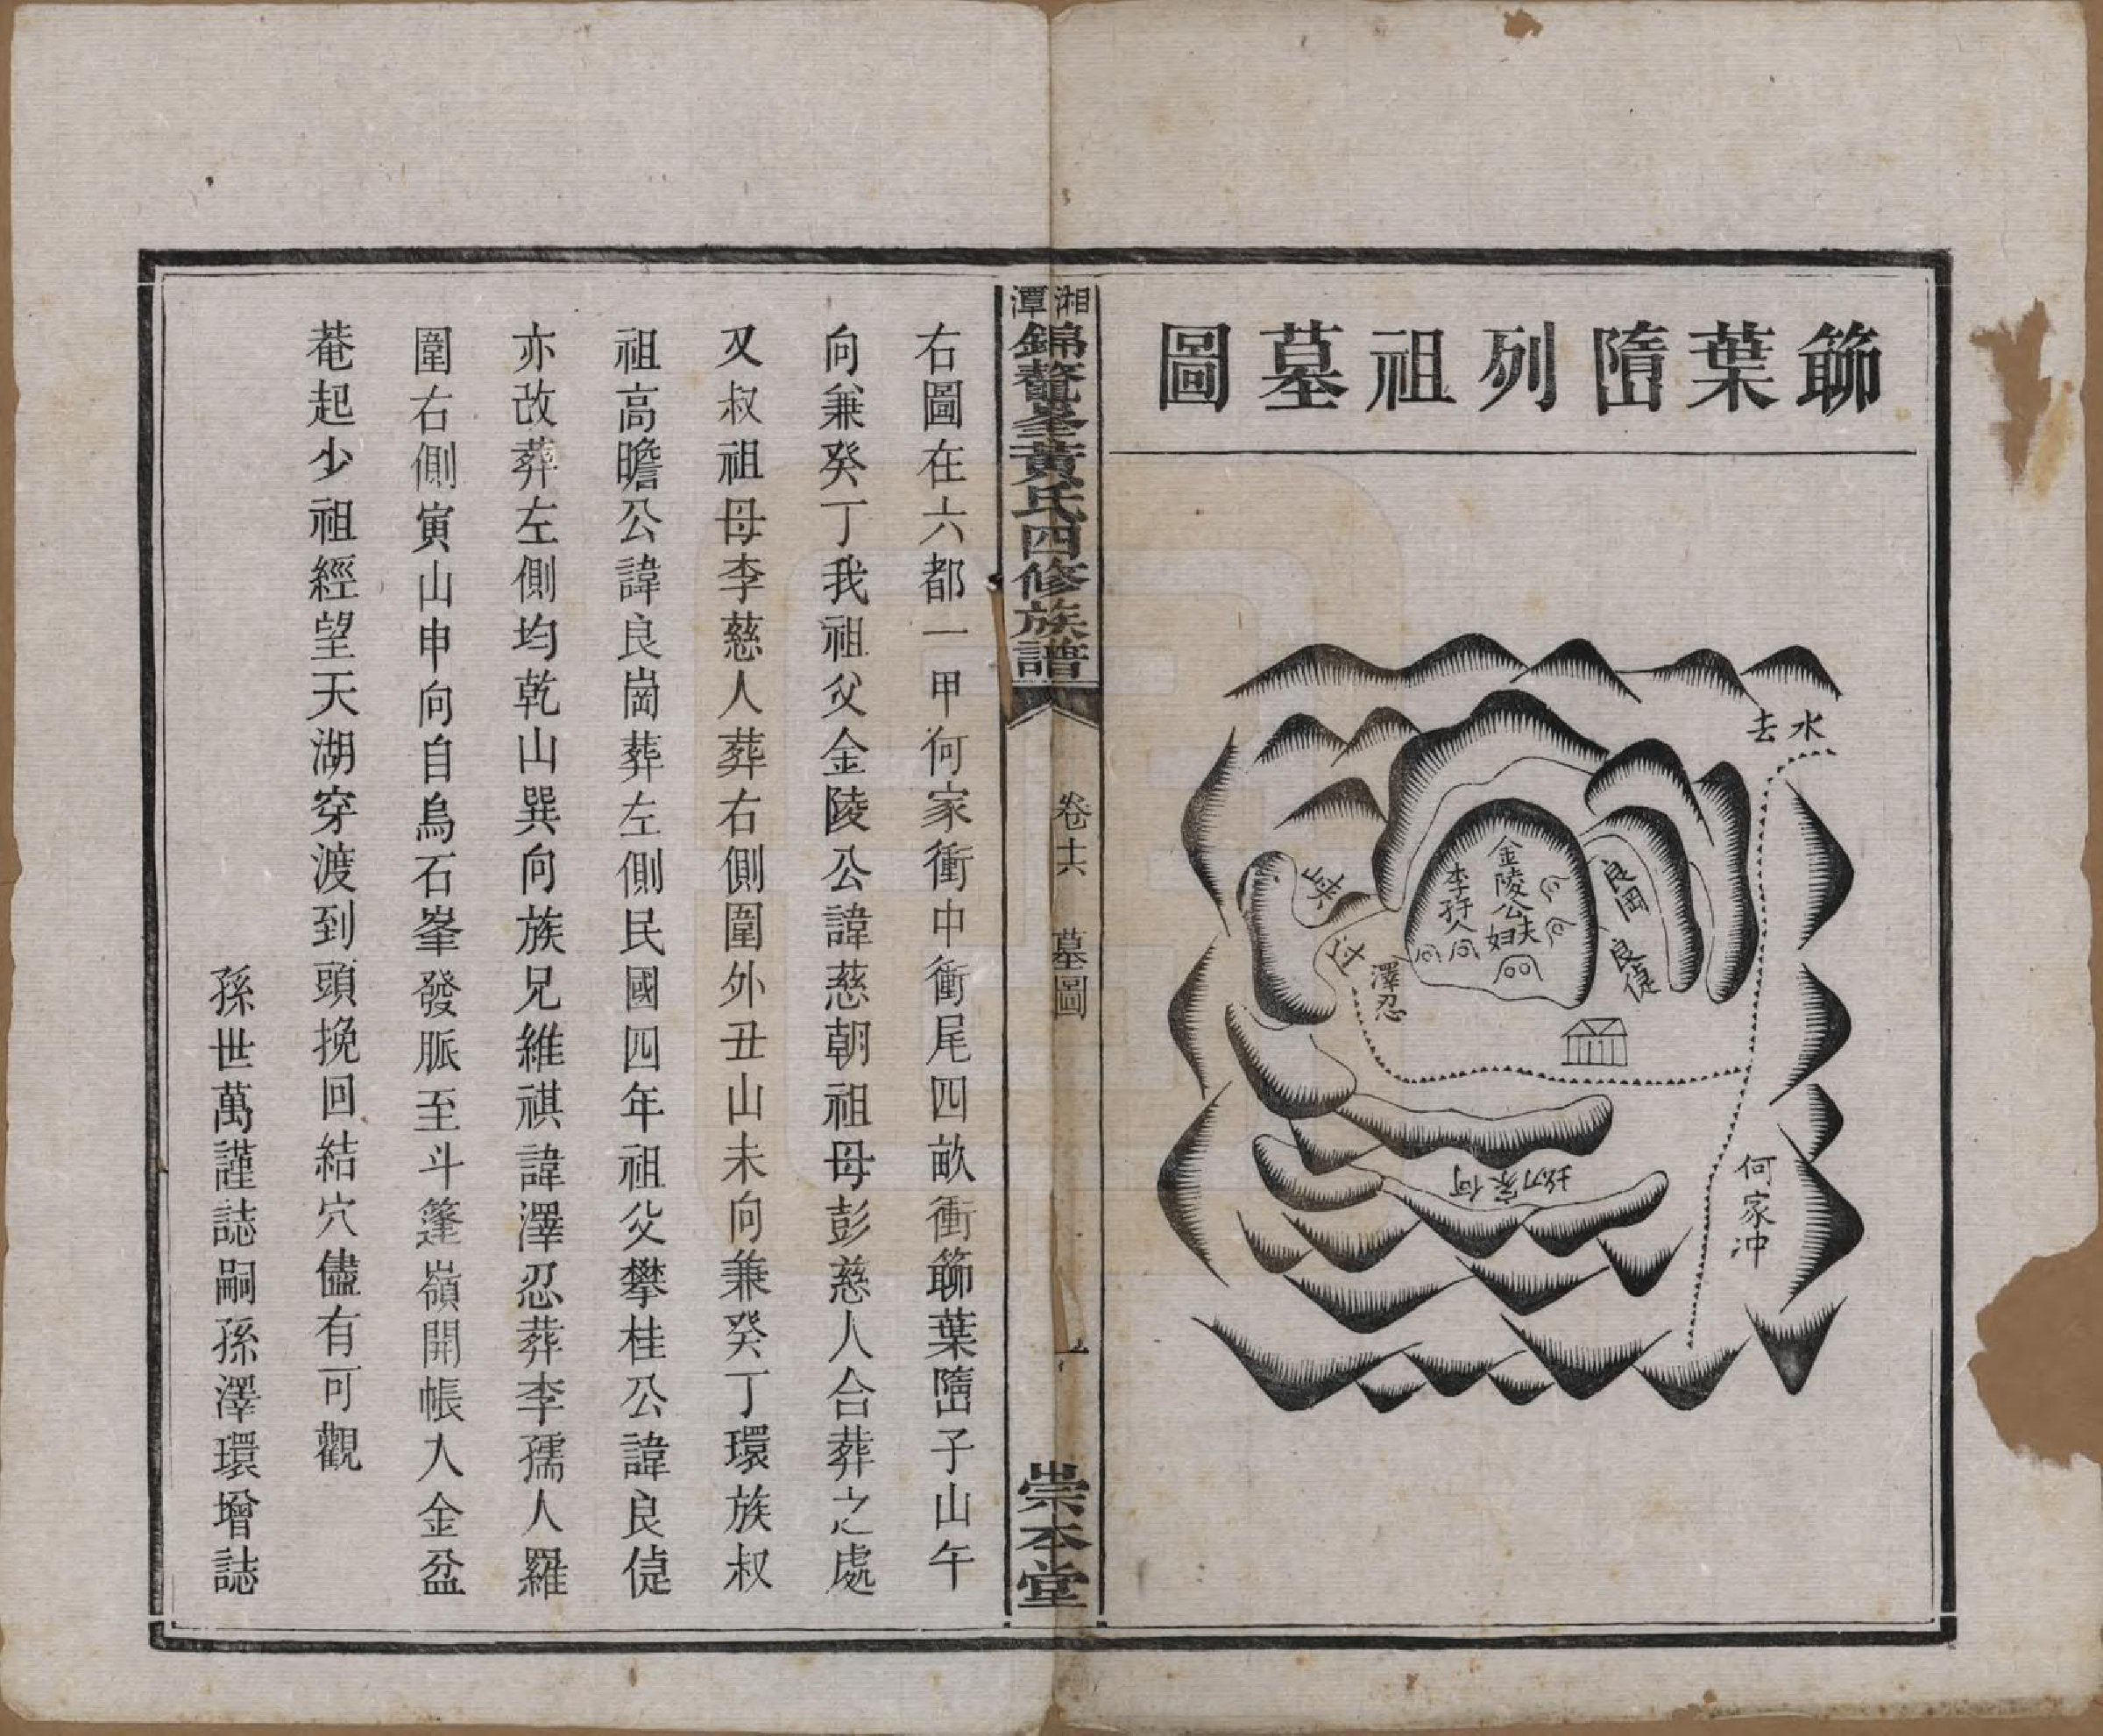 篰葉嶞列祖墓圖
水去
金陵公夫妇
李孺人
良岡
良偍
峽
过
澤忍
何家坳
何家冲
湘潭錦鼇峯黃氏四修族譜
卷十六
墓圖
崇本堂
右圖在六都一甲何家衝中衝尾四畝衝篰葉嶞子山午
向兼癸丁我祖父金陵公諱慈朝祖母彭慈人合葬之處
又叔祖母李慈人葬右側圍外丑山未向兼癸丁環族叔
祖高瞻公諱良崗葬左側民國四年祖父攀桂公諱良偍
亦改葬左側均乾山巽向族兄維祺諱澤忍葬李孺人羅
圍右側寅山申向自烏石峯發脈至斗篷嶺開帳人金盆
菴起少祖經望天湖穿渡到頭挽回結穴儘有可觀
孫世萬謹誌嗣孫澤環增誌